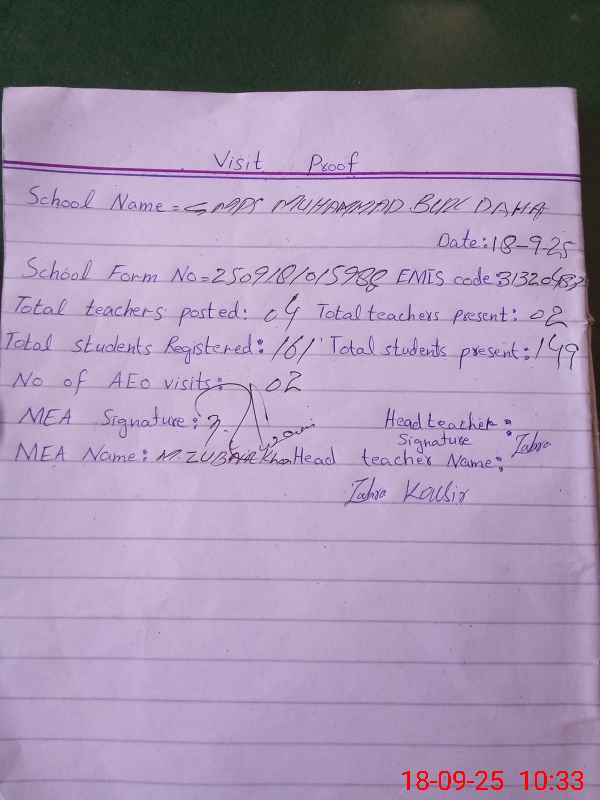 Visit Proof
School Name = GMPS MUHAMMAD BUX DAHA
Date: 18-9-25
School Form No = 250918/015988 EMIS code 31320482
Total teachers posted: 04 Total teachers present: 02
Total students Registered: 161 Total students present: 149
No of AEO visits: 02
MEA Signature: Headteacher Signature: Zahra
MEA Name: M. ZUBAIR Khan Head teacher Name:
Zahra Kousir
18-09-25 10:33